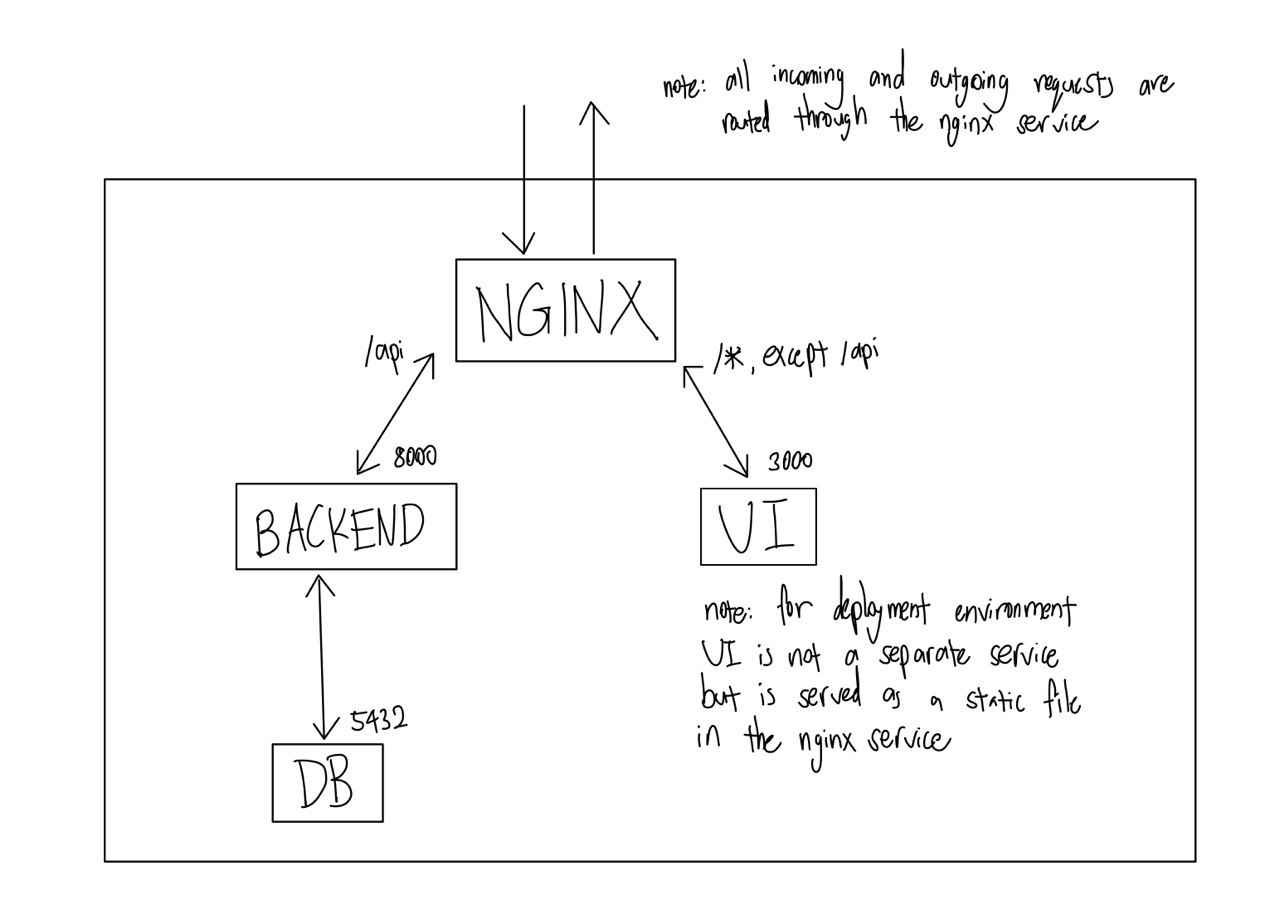 note: all incoming and outgoing requests are
routed through the nginx service
NGINX
/api
/*, except /api
8000
3000
BACKEND
UI
note: for deployment environment
UI is not a separate service
but is served as a static file
in the nginx service
5432
DB